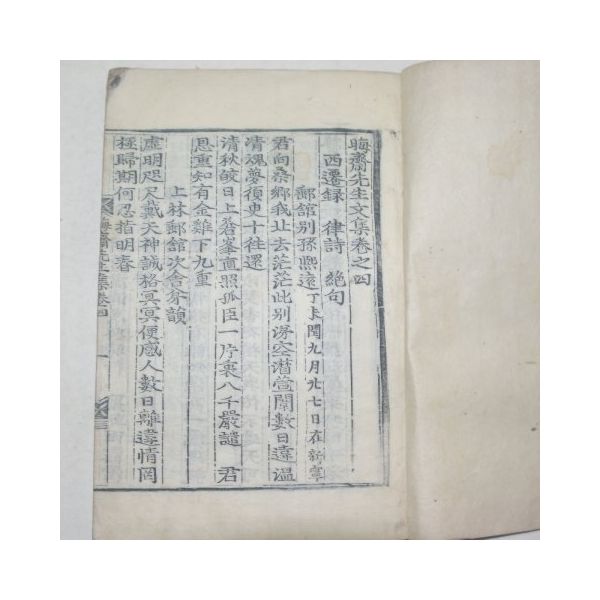 晦齋先生文集卷之四
西遷録 律詩 絶句
郵舘別孫煕遠 丁未閏九月廿七日在新寧
君向桑鄕我北去茫茫此別淚空潸萱闈數日違溫
清魂夢須臾十往還
清秋皎日上峯直照孤臣一片衷八千嚴譴 君
恩重知有金雞下九重
上林郵舘次舍弟韻
虛明咫尺戴天神誠格冥冥便感人數日離違情罔
極歸期何忍指明春
晦齋先生集卷四 一